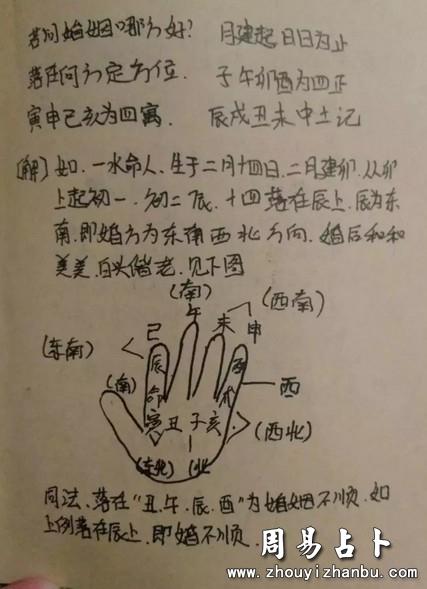 若问婚姻哪方好? 月建起日日为止
落在何方定方位. 子午卯酉为四正
寅申巳亥为四寓. 辰戌丑未中土记
[解] 如.一水命人.生于二月十四日.二月建卯.从卯
上起初一.初二辰.十四落在辰上.辰为东
南.即婚方为东南西北方向.婚后和和
美美.白头偕老.见下图
(南)
午
未 申 (西南)
巳
(东南)
辰
酉
西
(南)
命
戌
寅 丑 子 亥
(西北)
(东北) (北
同法.落在“丑.午.辰.酉”为婚姻不顺.如
上例落在辰上.即婚不顺.
周易占卜
www.zhouyizhanbu.com